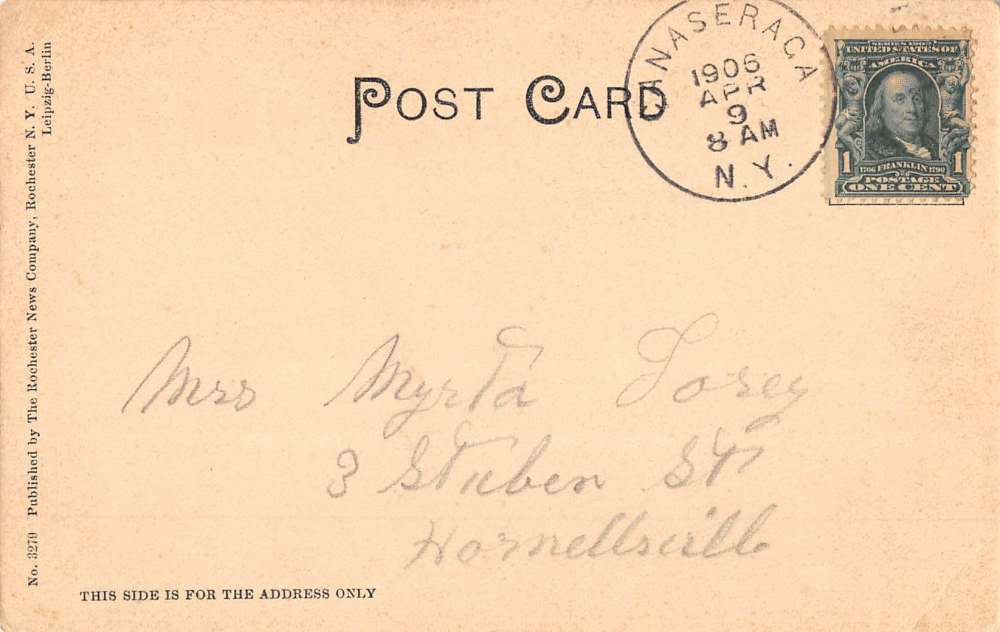 POST CARD
CANASERAGA
1906
APR
9
8 AM
N.Y.
SERIES 1902
UNITED STATES OF
AMERICA
1 1706 FRANKLIN 1790 1
POSTAGE
ONE CENT
Mrs Myrta Losey
3 Stuben St
Hornellsville
THIS SIDE IS FOR THE ADDRESS ONLY
No. 3279 Published by The Rochester News Company, Rochester N. Y. U. S. A.
Leipzig-Berlin